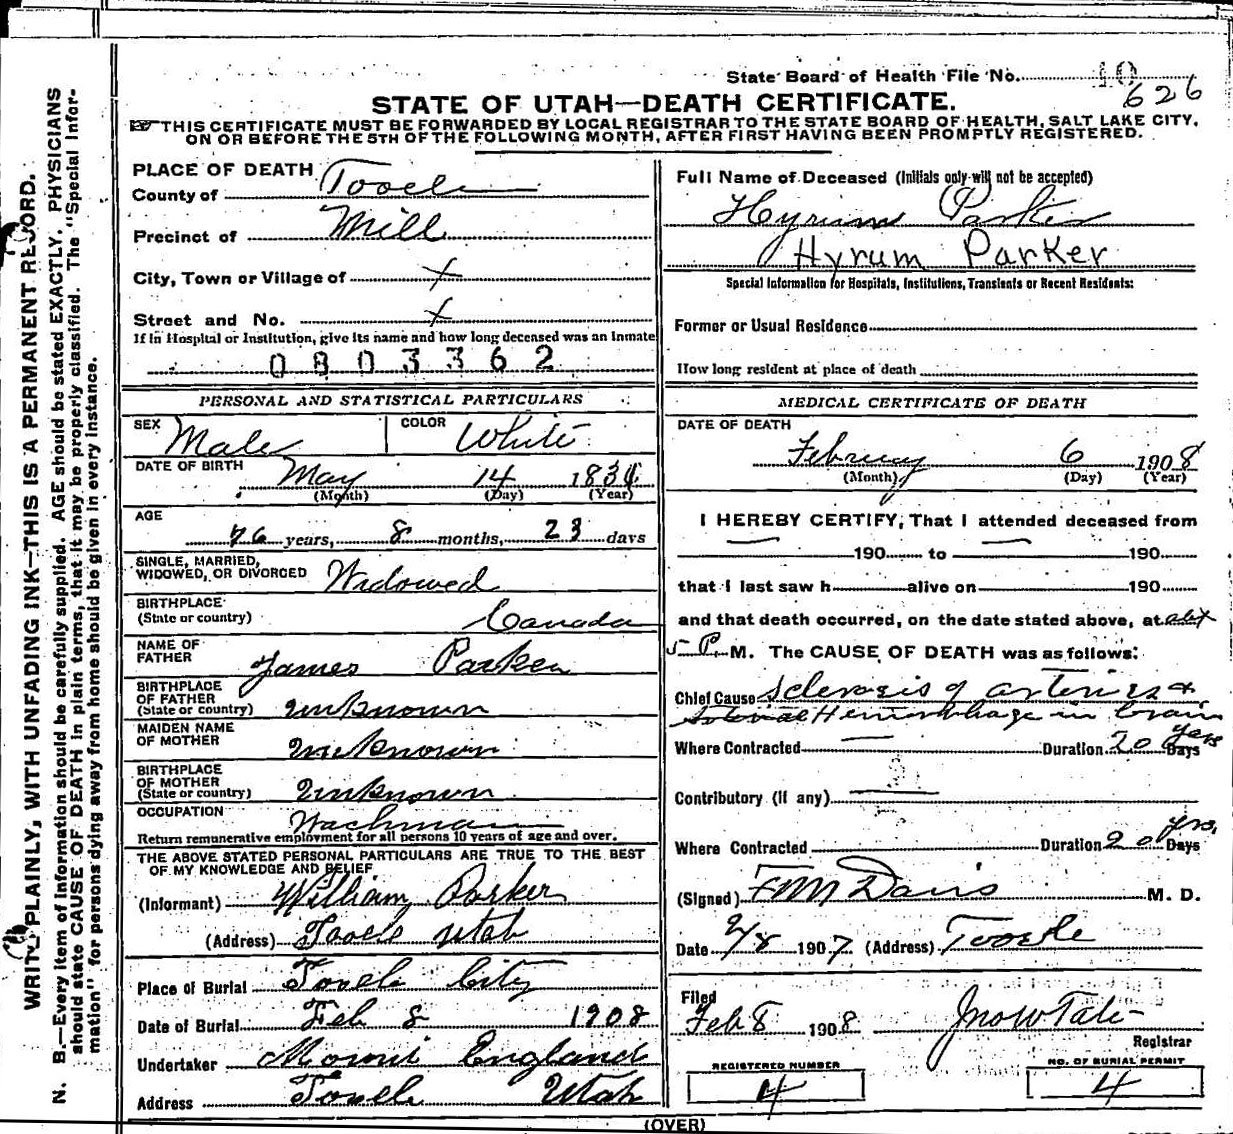 State Board of Health File No. 10
626
STATE OF UTAH—DEATH CERTIFICATE.
THIS CERTIFICATE MUST BE FORWARDED BY LOCAL REGISTRAR TO THE STATE BOARD OF HEALTH, SALT LAKE CITY,
ON OR BEFORE THE 5TH OF THE FOLLOWING MONTH, AFTER FIRST HAVING BEEN PROMPTLY REGISTERED.
WRITE PLAINLY, WITH UNFADING INK—THIS IS A PERMANENT RECORD.
N. B.—Every item of information should be carefully supplied. AGE should be stated EXACTLY. PHYSICIANS
should state CAUSE OF DEATH in plain terms, that it may be properly classified. The "Special Infor-
mation" for persons dying away from home should be given in every instance.
PLACE OF DEATH
County of Tooele
Precinct of Mill
City, Town or Village of x
Street and No. x
If in Hospital or Institution, give its name and how long deceased was an inmate
0803362
PERSONAL AND STATISTICAL PARTICULARS
SEX Male COLOR White
DATE OF BIRTH May 14 1831
(Month) (Day) (Year)
AGE
76 years, 8 months, 23 days
SINGLE, MARRIED,
WIDOWED, OR DIVORCED Widowed
BIRTHPLACE
(State or country) Canada
NAME OF
FATHER James Parker
BIRTHPLACE
OF FATHER
(State or country) Unknown
MAIDEN NAME
OF MOTHER Unknown
BIRTHPLACE
OF MOTHER
(State or country) Unknown
OCCUPATION Wachman
Return remunerative employment for all persons 10 years of age and over.
THE ABOVE STATED PERSONAL PARTICULARS ARE TRUE TO THE BEST
OF MY KNOWLEDGE AND BELIEF
(Informant) William Parker
(Address) Tooele Utah
Place of Burial Tooele City
Date of Burial Feb 8 1908
Undertaker Moroni England
Address Tooele Utah
Full Name of Deceased (Initials only will not be accepted)
Hyrum Parker
Hyrum Parker
Special Information for Hospitals, Institutions, Transients or Recent Residents:
Former or Usual Residence
How long resident at place of death
MEDICAL CERTIFICATE OF DEATH
DATE OF DEATH
February 6 1908
(Month) (Day) (Year)
I HEREBY CERTIFY, That I attended deceased from
190 to 190
that I last saw h alive on 190
and that death occurred, on the date stated above, at abt
5 P. M. The CAUSE OF DEATH was as follows:
Chief Cause Sclerosis of arteries +
Hemorrhage in brain
Where Contracted Duration 20 yrs Days
Contributory (if any)
Where Contracted Duration 20 yrs, Days
(Signed) F M Davis M. D.
Date 2/8 1907 (Address) Tooele
Filed
Feb 8 1908 Jno W Tate
Registrar
REGISTERED NUMBER
4
NO. OF BURIAL PERMIT
4
(OVER)